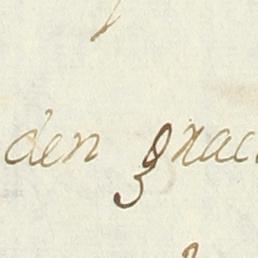 den grac